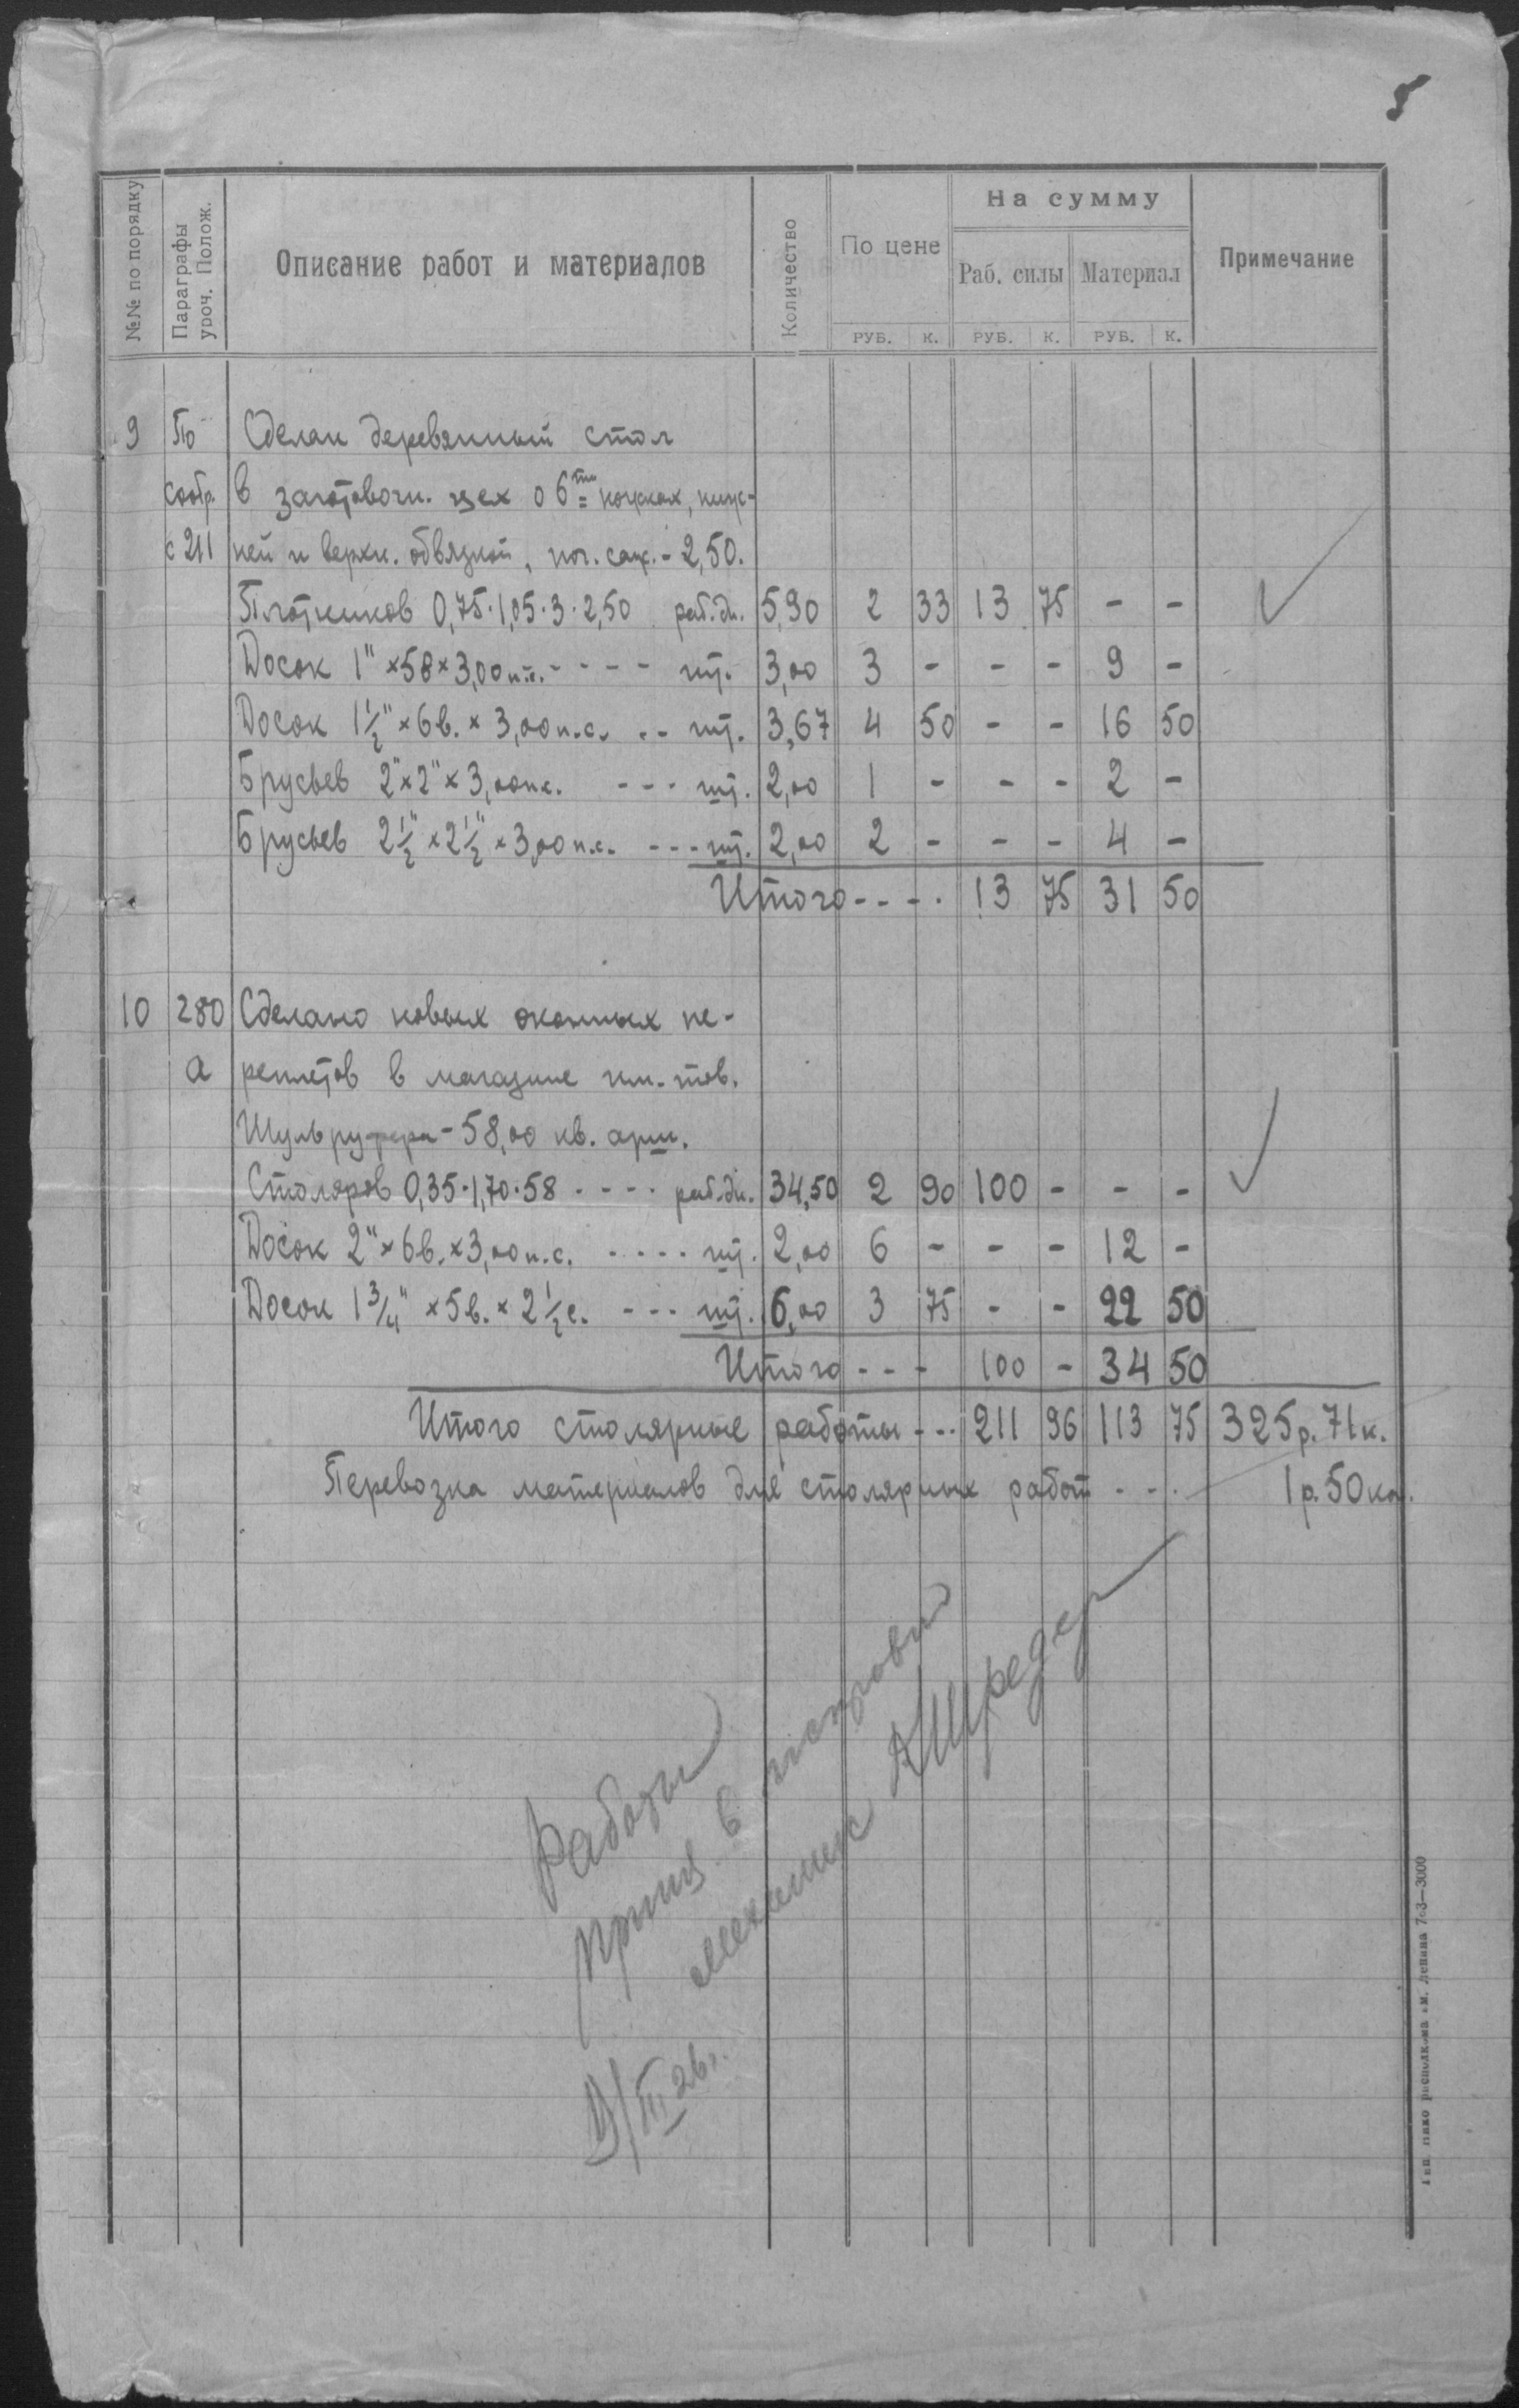 5
№№ по порядку
Параграфы уроч. Полож.
Описание работ и материалов
Количество
По цене
На сумму
Раб. силы Материал
Примечание
РУБ. К. РУБ. К. РУБ. К.
9 По Сделан деревянный стол
соотр. в заготовочн. цех о 6ти ножках, ниж-
с 211 ней и верхн. обвязкой, пог. саж. - 2,50.
Плотников 0,75·1,05·3·2,50 раб. дн. 5,90 2 33 13 75 - -
Досок 1" × 5в × 3,00 п.с. - - - - шт. 3,00 3 - - - 9 -
Досок 1 1/2" × 6в. × 3,00 п.с. - - шт. 3,67 4 50 - - 16 50
Брусьев 2" × 2" × 3,00 п.с. - - - шт. 2,00 1 - - - 2 -
Брусьев 2 1/2" × 2 1/2" × 3,00 п.с. - - - шт. 2,00 2 - - - 4 -
Итого - - - - 13 75 31 50
10 280 Сделано новых оконных пе-
а реплетов в магазине им. тов.
Шульруфера - 58,00 кв. арш.
Столяров 0,35·1,70·58 - - - - раб. дн. 34,50 2 90 100 - - -
Досок 2" × 6в. × 3,00 п.с. - - - - - шт. 2,00 6 - - - 12 -
Досок 1 3/4" × 5в. × 2 1/2 с. - - - шт. 6,00 3 75 - - 22 50
Итого - - - 100 - 34 50
Итого столярные работы - - - 211 96 113 75 325 р. 71 к.
Перевозка материалов для столярных работ - - - 1 р. 50 ко.
Работы
принял в
механик АШредер
III 26 г.
им. Ленина 763—3000